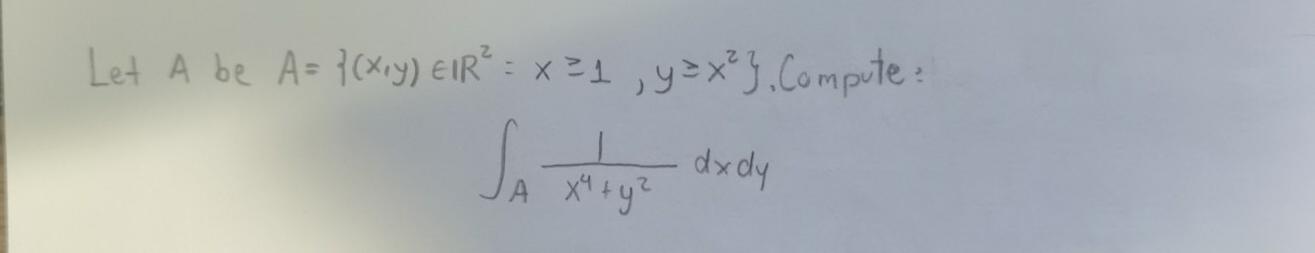 Let A be A= {(x,y) ∈ ℝ² : x ≥ 1 , y ≥ x² }. Compute :
∫_A 1/(x⁴ + y²) dx dy